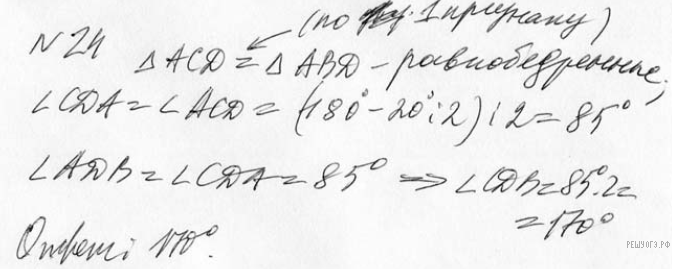 (по 1 признаку)
N 24 △ACD = △ABD – равнобедренные,
∠CDA = ∠ACD = (180° - 20° : 2) : 2 = 85°
∠ADB = ∠CDA = 85° ⇒ ∠CDB = 85°·2 =
= 170°
Ответ: 170°.
РЕШУОГЭ.РФ